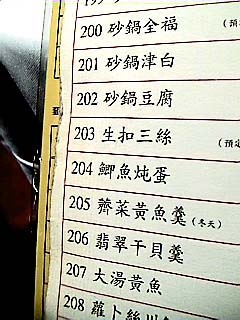 200 砂鍋全福 (預
201 砂鍋津白
202 砂鍋豆腐
203 生扣三絲 (預定
204 鯽魚炖蛋
205 薺菜黃魚羹 (冬天)
206 翡翠干貝羹
207 大湯黃魚
208 蘿卜絲